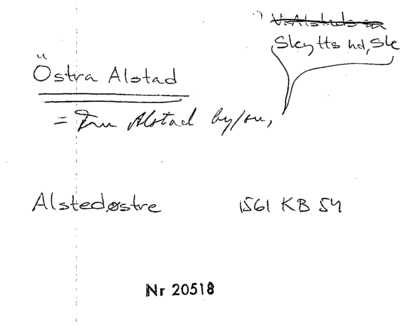 Skytts hd, Sk
Östra Alstad
= Alstad by/sn,
Alstedøstre 1561 KB 54
Nr 20518